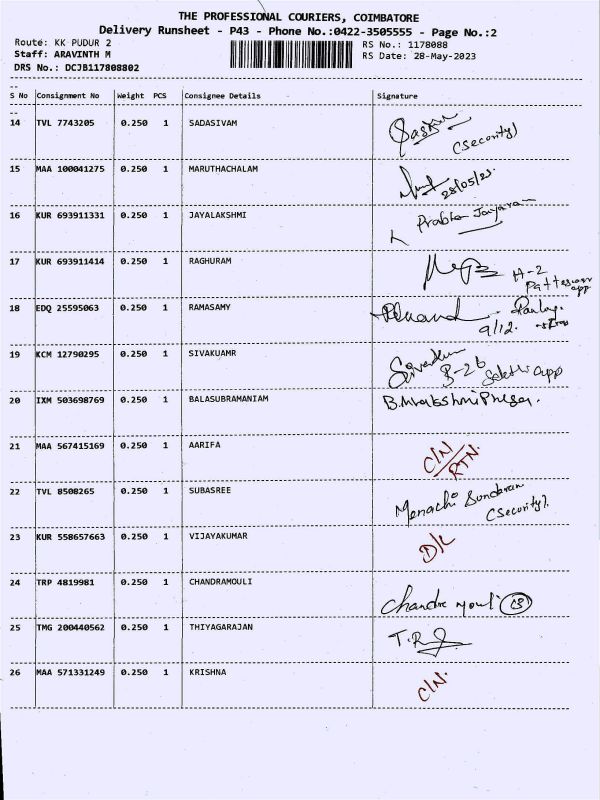 THE PROFESSIONAL COURIERS, COIMBATORE
Delivery Runsheet - P43 - Phone No.:0422-3505555 - Page No.:2
Route: KK PUDUR 2 RS No.: 1178088
Staff: ARAVINTH M RS Date: 28-May-2023
DRS No.: DCJB117808802
S No Consignment No Weight PCS Consignee Details Signature
14 TVL 7743205 0.250 1 SADASIVAM
(Security)
15 MAA 100041275 0.250 1 MARUTHACHALAM
28/05/23.
16 KUR 693911331 0.250 1 JAYALAKSHMI
Prabha Jayaram
17 KUR 693911414 0.250 1 RAGHURAM
H-2
app
18 EDQ 25595063 0.250 1 RAMASAMY
9/12.
19 KCM 12790295 0.250 1 SIVAKUAMR
B-26
app
20 IXM 503698769 0.250 1 BALASUBRAMANIAM
21 MAA 567415169 0.250 1 AARIFA
C/N
RTN.
22 TVL 8508265 0.250 1 SUBASREE
Menachi Sundaram
(Security).
23 KUR 558657663 0.250 1 VIJAYAKUMAR
D/L
24 TRP 4819981 0.250 1 CHANDRAMOULI
Chandra mouli
25 TMG 200440562 0.250 1 THIYAGARAJAN
26 MAA 571331249 0.250 1 KRISHNA
C/N.